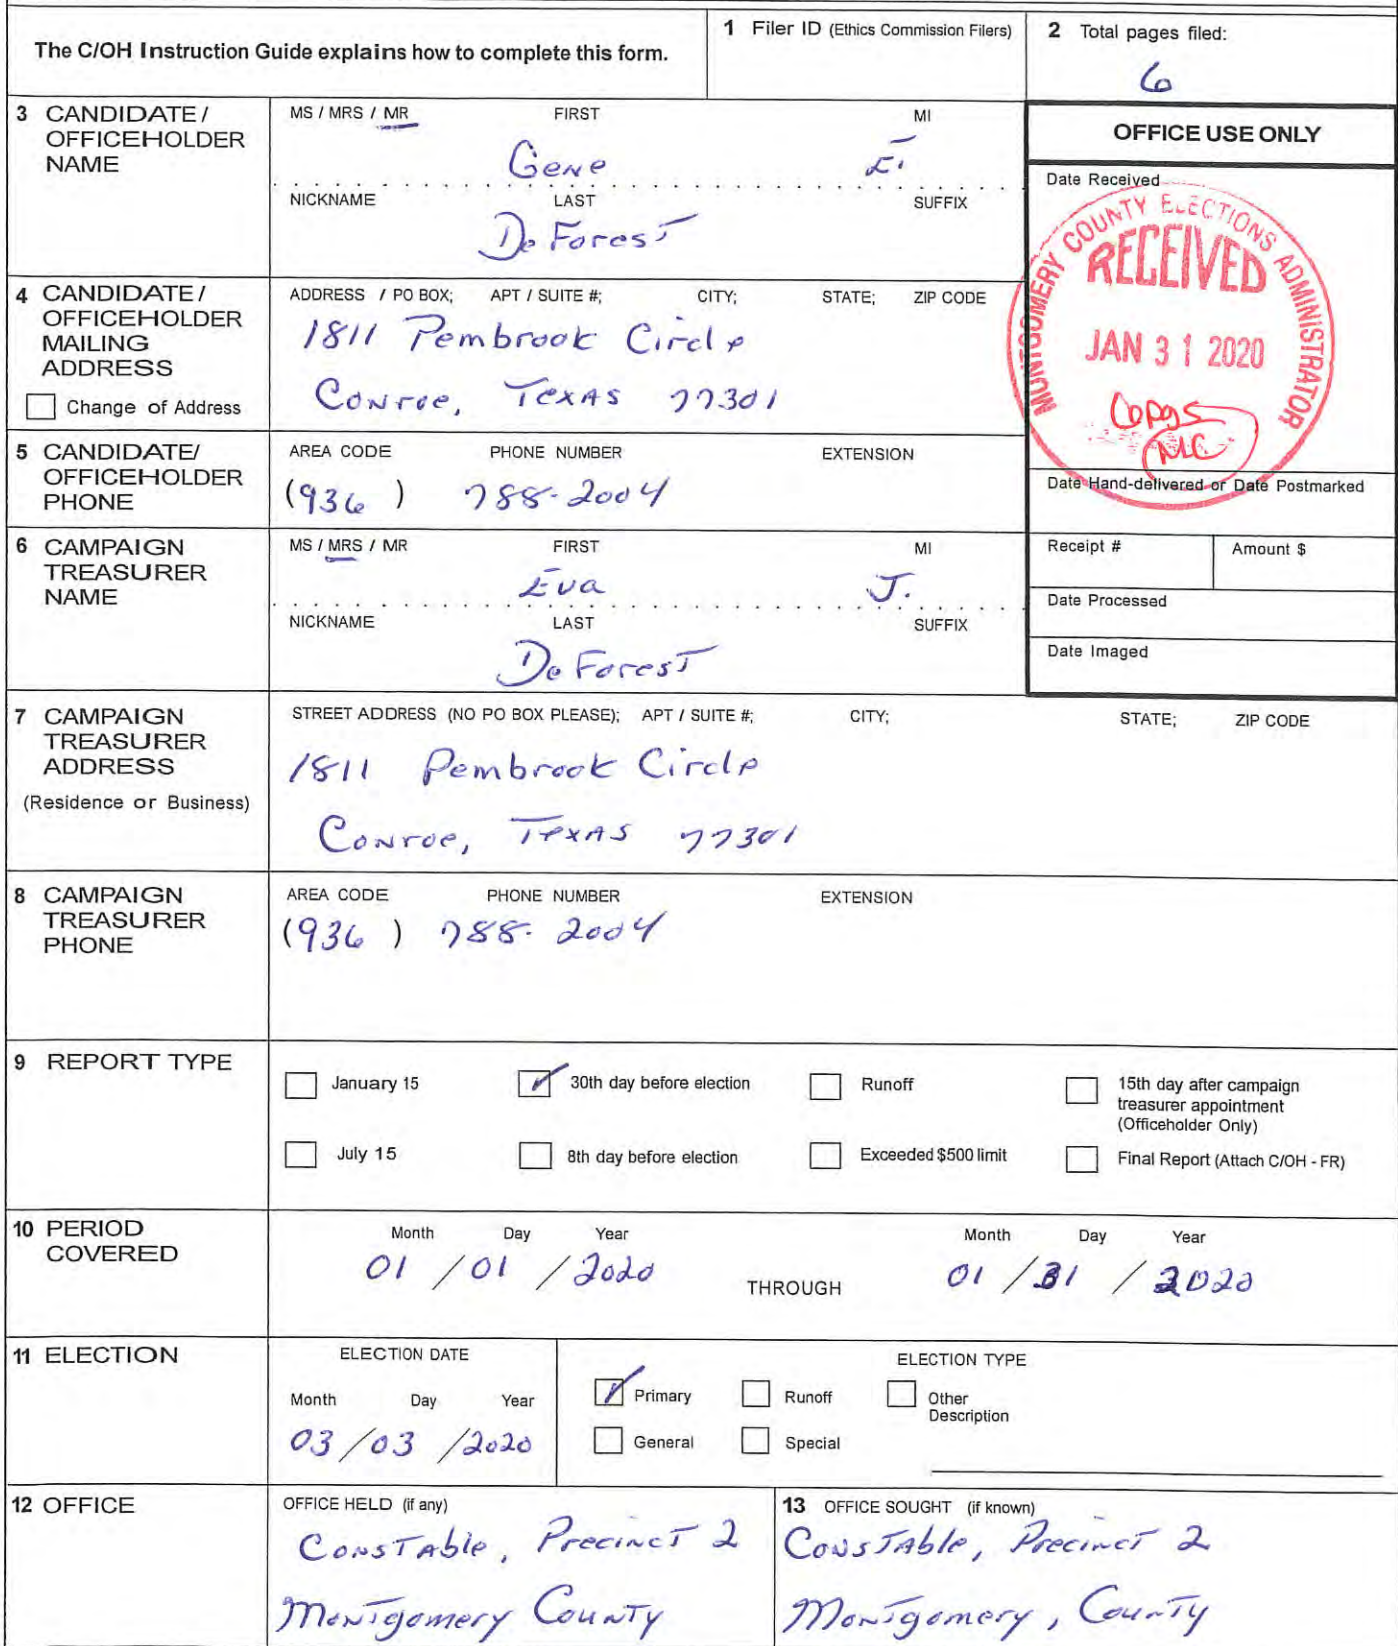 The C/OH Instruction Guide explains how to complete this form.
1 Filer ID (Ethics Commission Filers)
2 Total pages filed:
6
3 CANDIDATE / OFFICEHOLDER NAME
MS / MRS / MR FIRST MI
Gene E.
NICKNAME LAST SUFFIX
DeForest
OFFICE USE ONLY
Date Received
MONTGOMERY COUNTY ELECTIONS ADMINISTRATOR
RECEIVED
JAN 31 2020
6pgs
MC
Date Hand-delivered or Date Postmarked
Receipt # Amount $
Date Processed
Date Imaged
4 CANDIDATE / OFFICEHOLDER MAILING ADDRESS
Change of Address
ADDRESS / PO BOX; APT / SUITE #; CITY; STATE; ZIP CODE
1811 Pembrook Circle
Conroe, Texas 77301
5 CANDIDATE/ OFFICEHOLDER PHONE
AREA CODE PHONE NUMBER EXTENSION
(936) 788-2004
6 CAMPAIGN TREASURER NAME
MS / MRS / MR FIRST MI
Eva J.
NICKNAME LAST SUFFIX
DeForest
7 CAMPAIGN TREASURER ADDRESS
(Residence or Business)
STREET ADDRESS (NO PO BOX PLEASE); APT / SUITE #; CITY; STATE; ZIP CODE
1811 Pembrook Circle
Conroe, Texas 77301
8 CAMPAIGN TREASURER PHONE
AREA CODE PHONE NUMBER EXTENSION
(936) 788-2004
9 REPORT TYPE
January 15
30th day before election
Runoff
15th day after campaign treasurer appointment (Officeholder Only)
July 15
8th day before election
Exceeded $500 limit
Final Report (Attach C/OH - FR)
10 PERIOD COVERED
Month Day Year
01 / 01 / 2020
THROUGH
Month Day Year
01 / 31 / 2020
11 ELECTION
ELECTION DATE
Month Day Year
03 / 03 / 2020
ELECTION TYPE
Primary
Runoff
Other Description
General
Special
12 OFFICE
OFFICE HELD (if any)
Constable, Precinct 2
Montgomery County
13 OFFICE SOUGHT (if known)
Constable, Precinct 2
Montgomery, County